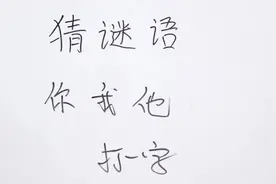 猜谜语
你我他
打一字